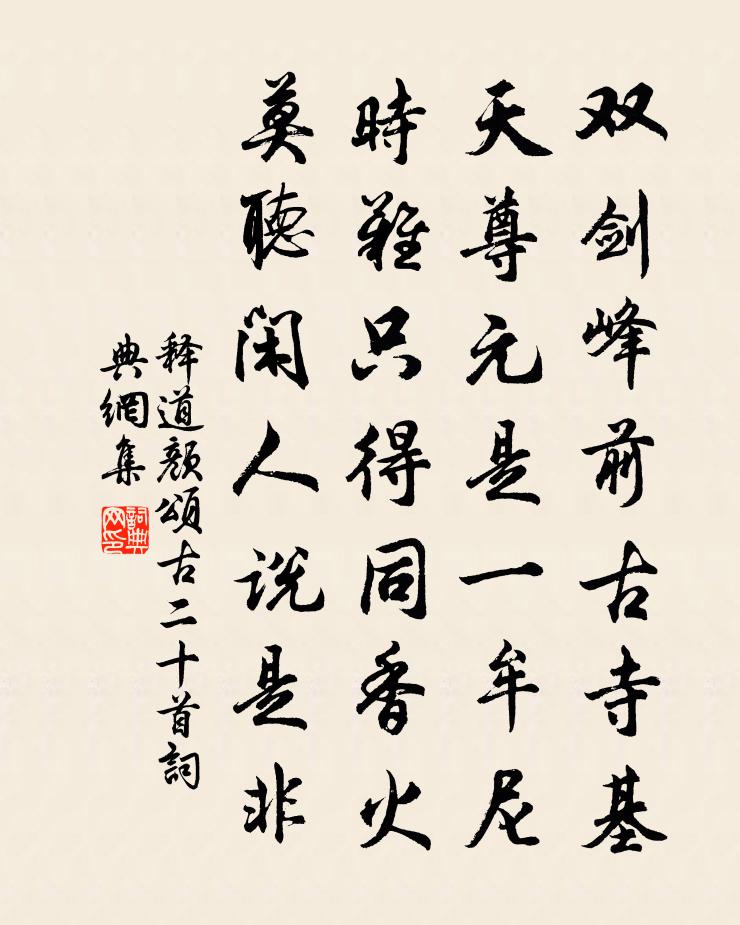 双剑峰前古寺基
天尊元是一牟尼
時難只得同香火
莫聽閑人説是非
释道颜頌古二十首詞
典網集
詞典网印